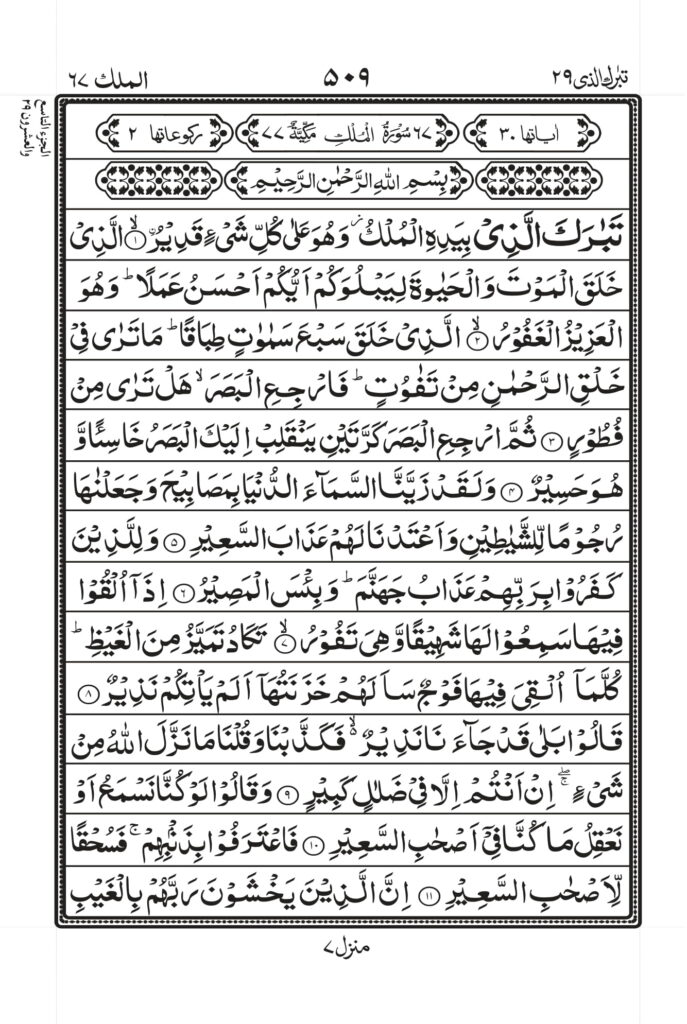 تبٰرك الذی ۲۹
۵۰۹
الملك ۶۷
الجزء التاسع
والعشرون ۲۹
اٰیاتها ۳۰
۶۷ سُوْرَةُ الْمُلْكِ مَكِّیَّةٌ ۷۷
ركوعاتها ۲
بِسْمِ اللهِ الرَّحْمٰنِ الرَّحِیْمِ
تَبٰرَكَ الَّذِیْ بِیَدِهِ الْمُلْكُ ؗ وَهُوَ عَلٰى كُلِّ شَیْءٍ قَدِیْرُۙ ۨ ۱ الَّذِیْ
خَلَقَ الْمَوْتَ وَالْحَیٰوةَ لِیَبْلُوَكُمْ اَیُّكُمْ اَحْسَنُ عَمَلًا ؕ وَهُوَ
الْعَزِیْزُ الْغَفُوْرُۙ ۲ الَّذِیْ خَلَقَ سَبْعَ سَمٰوٰتٍ طِبَاقًا ؕ مَا تَرٰى فِیْ
خَلْقِ الرَّحْمٰنِ مِنْ تَفٰوُتٍ ؕ فَارْجِعِ الْبَصَرَ ۙ هَلْ تَرٰى مِنْ
فُطُوْرٍ ۳ ثُمَّ ارْجِعِ الْبَصَرَ كَرَّتَیْنِ یَنْقَلِبْ اِلَیْكَ الْبَصَرُ خَاسِئًا وَّ
هُوَ حَسِیْرٌ ۴ وَلَقَدْ زَیَّنَّا السَّمَآءَ الدُّنْیَا بِمَصَابِیْحَ وَجَعَلْنٰهَا
رُجُوْمًا لِّلشَّیٰطِیْنِ وَاَعْتَدْنَا لَهُمْ عَذَابَ السَّعِیْرِ ۵ وَلِلَّذِیْنَ
كَفَرُوْا بِرَبِّهِمْ عَذَابُ جَهَنَّمَ ؕ وَبِئْسَ الْمَصِیْرُ ۶ اِذَاۤ اُلْقُوْا
فِیْهَا سَمِعُوْا لَهَا شَهِیْقًا وَّهِیَ تَفُوْرُۙ ۷ تَكَادُ تَمَیَّزُ مِنَ الْغَیْظِ ؕ
كُلَّمَاۤ اُلْقِیَ فِیْهَا فَوْجٌ سَاَلَهُمْ خَزَنَتُهَاۤ اَلَمْ یَاْتِكُمْ نَذِیْرٌ ۸
قَالُوْا بَلٰى قَدْ جَآءَنَا نَذِیْرٌ ۙ۬ فَكَذَّبْنَا وَقُلْنَا مَا نَزَّلَ اللهُ مِنْ
شَیْءٍ ۖۚ اِنْ اَنْتُمْ اِلَّا فِیْ ضَلٰلٍ كَبِیْرٍ ۹ وَقَالُوْا لَوْ كُنَّا نَسْمَعُ اَوْ
نَعْقِلُ مَا كُنَّا فِیْۤ اَصْحٰبِ السَّعِیْرِ ۱۰ فَاعْتَرَفُوْا بِذَنْۢبِهِمْ ۚ فَسُحْقًا
لِّاَصْحٰبِ السَّعِیْرِ ۱۱ اِنَّ الَّذِیْنَ یَخْشَوْنَ رَبَّهُمْ بِالْغَیْبِ
منزل ۷